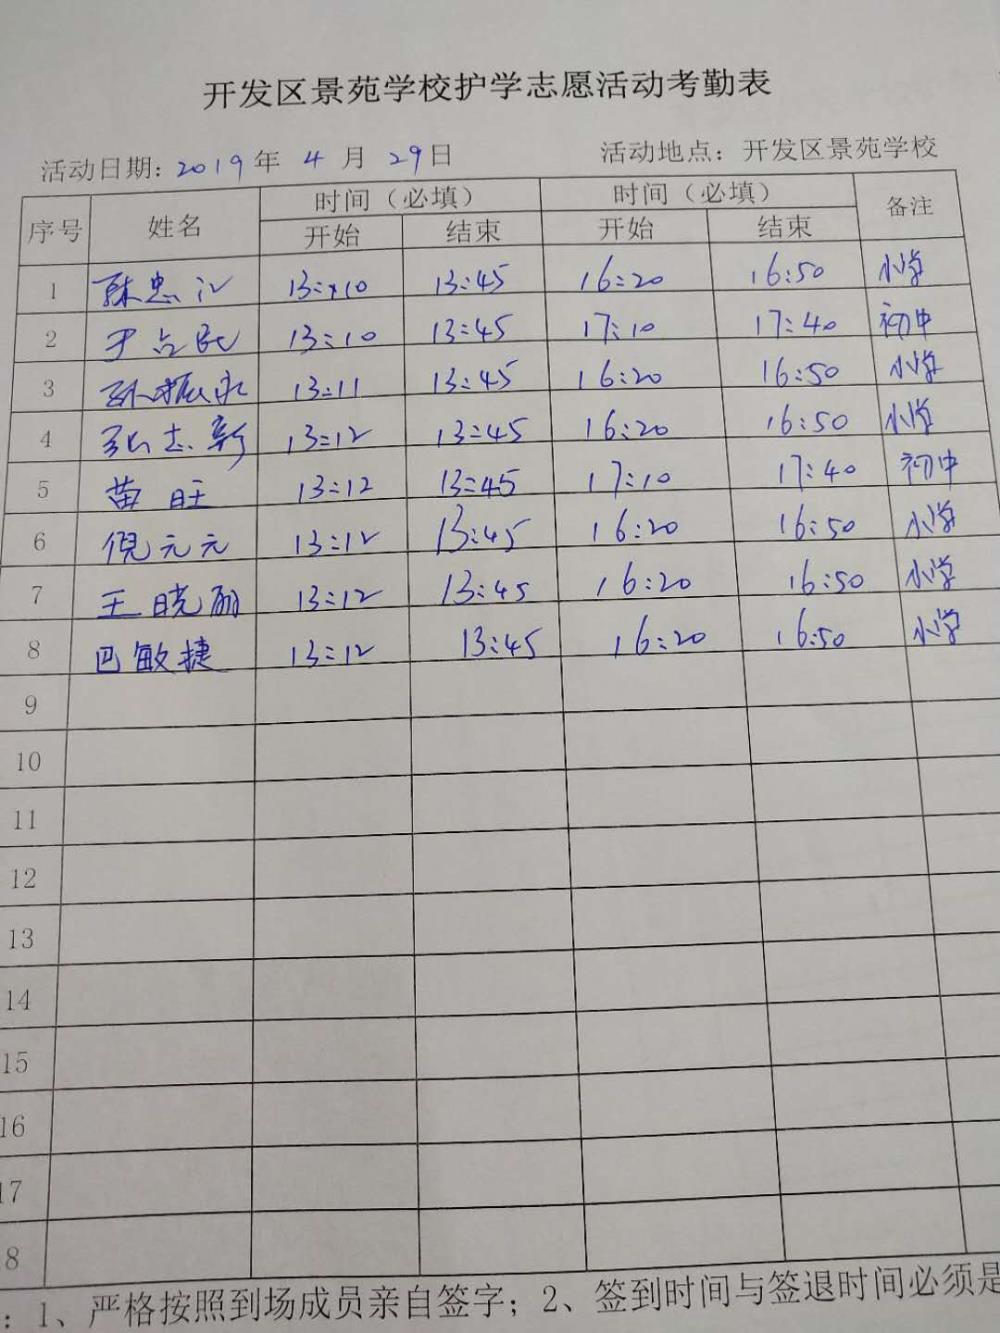 开发区景苑学校护学志愿活动考勤表
活动日期: 2019 年 4 月 29 日 活动地点: 开发区景苑学校
序号 姓名 时间（必填） 时间（必填） 备注
开始 结束 开始 结束
1 陈忠江 13:10 13:45 16:20 16:50 小学
2 于占民 13:10 13:45 17:10 17:40 初中
3 孙振永 13:11 13:45 16:20 16:50 小学
4 张志新 13:12 13:45 16:20 16:50 小学
5 苗旺 13:12 13:45 17:10 17:40 初中
6 倪元元 13:12 13:45 16:20 16:50 小学
7 王晓丽 13:12 13:45 16:20 16:50 小学
8 巴敏捷 13:12 13:45 16:20 16:50 小学
9
10
11
12
13
14
15
16
17
8
: 1、严格按照到场成员亲自签字；2、签到时间与签退时间必须是